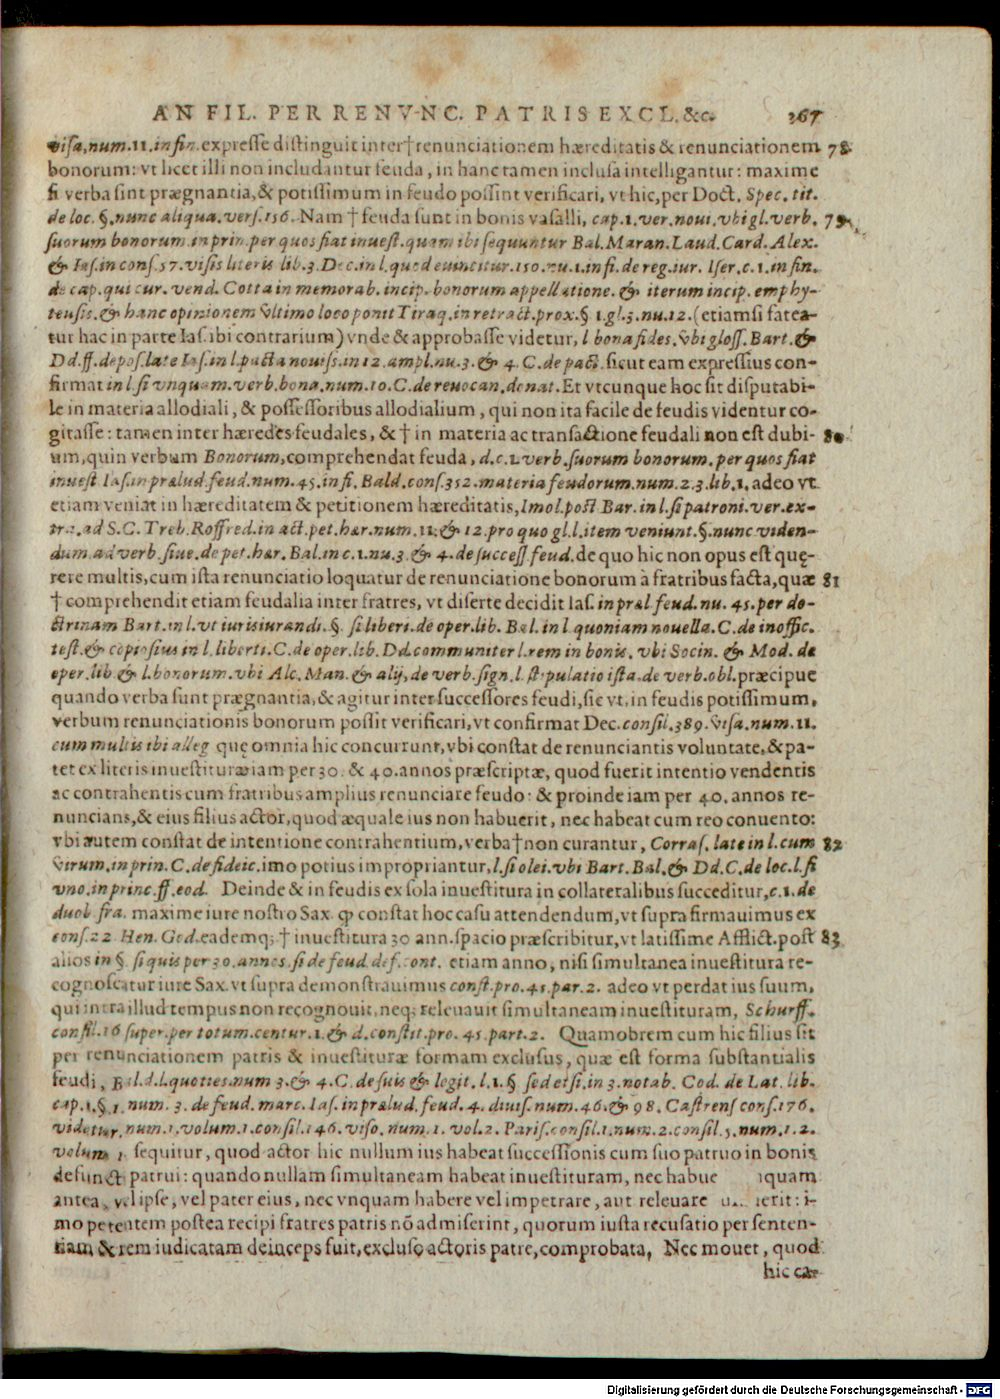 AN FIL. PER RENVNC. PATRIS EXCL. &c. 267
visa, num. 11. in fin. expresse distinguit inter † renunciationem hæreditatis & renunciationem 78
bonorum: vt licet illi non includantur feuda, in hanc tamen inclusa intelligantur: maxime
si verba sint prægnantia, & potissimum in feudo possint verificari, vt hic, per Doct. Spec. tit.
de loc. §. nunc aliqua. vers. 156. Nam † feuda sunt in bonis vasalli, cap. 1. ver. noui. vbi gl. verb. 79
suorum bonorum. in prin. per quos fiat inuest. quam ibi sequuntur Bal. Maran. Laud. Card. Alex.
& Ias. in cons. 57. visis literis lib. 3. Dec. in l. quod euincitur. 150. nu. 1. infi. de reg. iur. Iser. c. 1. in fin.
de cap. qui cur. vend. Cotta in memorab. incip. bonorum appellatione. & iterum incip. emphy-
teusis. & hanc opinionem vltimo loco ponit Tiraq. in retract. prox. § 1. gl. 3. nu. 12. (etiamsi fatea-
tur hac in parte Ias. ibi contrarium) vnde & approbasse videtur, l bona fides. vbi gloss. Bart. &
Dd. ff. depos. late Ias. in l. pacta nouiss. in 12. ampl. nu. 3. & 4. C. de pact. sicut eam expressius con-
firmat in l. si vnquam. verb. bona. num. 10. C. de reuocan. donat. Et vtcunque hoc sit disputabi-
le in materia allodiali, & possessoribus allodialium, qui non ita facile de feudis videntur co-
gitasse: tamen inter hæredes feudales, & † in materia ac transactione feudali non est dubi- 80
um, quin verbum Bonorum, comprehendat feuda, d. c. 1. verb. suorum bonorum. per quos fiat
inuest Ias. in prælud. feud. num. 45. in fi. Bald. cons. 352. materia feudorum. num. 2. 3. lib. 1. adeo vt
etiam veniat in hæreditatem & petitionem hæreditatis, Imol. post Bar. in l. si patroni. ver. ex-
tra. ad S. C. Treb. Roffred. in act. pet. hær. num. 11. & 12. pro quo gl. l. item veniunt. §. nunc viden-
dum. ad verb. siue. de pet. hær. Bal. in c. 1. nu. 3. & 4. de success. feud. de quo hic non opus est quę-
rere multis, cum ista renunciatio loquatur de renunciatione bonorum à fratribus facta, quæ 81
† comprehendit etiam feudalia inter fratres, vt diserte decidit Ias. in præl. feud. nu. 45. per do-
ctrinam Bart. in l. vt iurisiurandi. §. si liberi. de oper. lib. Bal. in l quoniam nouella. C. de inoffic.
test. & copiosius in l. liberti. C. de oper. lib. Dd. communiter l. rem in bonis. vbi Socin. & Mod. de
oper. lib & l. bonorum. vbi Alc. Man. & alij, de verb. sign. l. stipulatio ista. de verb. obl. præcipue
quando verba sunt prægnantia, & agitur inter successores feudi, sic vt, in feudis potissimum,
verbum renunciationis bonorum possit verificari, vt confirmat Dec. consil. 389. visa. num. 11.
cum multis ibi alleg quę omnia hic concurrunt, vbi constat de renunciantis voluntate, & pa-
tet ex literis inuestituræ iam per 30. & 40. annos præscriptæ, quod fuerit intentio vendentis
ac contrahentis cum fratribus amplius renunciare feudo: & proinde iam per 40. annos re-
nuncians, & eius filius actor, quod æquale ius non habuerit, nec habeat cum reo conuento:
vbi autem constat de intentione contrahentium, verba † non curantur, Corras. late in l. cum 82
virum. in prin. C. de fideic. imo potius impropriantur, l. si olei. vbi Bart. Bal. & Dd. C. de loc. l. si
vno. in princ. ff. eod. Deinde & in feudis ex sola inuestitura in collateralibus succeditur, c. 1. de
duob fra. maxime iure nostro Sax. ꝙ constat hoc casu attendendum, vt supra firmauimus ex
cons. 22 Hen. God. eademq; † inuestitura 30 ann. spacio præscribitur, vt latissime Afflict. post 83
alios in §. si quis per 30. annos. si de feud. def. cont. etiam anno, nisi simultanea inuestitura re-
cognoscatur iure Sax. vt supra demonstrauimus const. pro. 45. par. 2. adeo vt perdat ius suum,
qui intra illud tempus non recognouit, neq; releuauit simultaneam inuestituram, Schurff.
consil. 16 super. per totum. centur. 1. & d. constit. pro. 45. part. 2. Quamobrem cum hic filius sit
per renunciationem patris & inuestituræ formam exclusus, quæ est forma substantialis
feudi, Bal. d. l. quoties. num 3. & 4. C. de suis & legit. l. 1. § sed etsi. in 3. notab. Cod. de Lat. lib.
cap. 1. §. 1. num. 3. de feud. marc. Ias. in prælud. feud. 4. diuis. num. 46. & 98. Castrens cons. 176.
videtur. num. 1. volum. 1. consil. 146. viso. num. 1. vol. 2. Paris. consil. 1. num. 2. consil. 5. num. 1. 2.
volum 1 sequitur, quod actor hic nullum ius habeat successionis cum suo patruo in bonis
defuncti patrui: quando nullam simultaneam habeat inuestituram, nec habue iquam
antea, vel ipse, vel pater eius, nec vnquam habere vel impetrare, aut releuare uerit: i-
mo petentem postea recipi fratres patris nõ admiserint, quorum iusta recusatio per senten-
tiam & rem iudicatam deinceps fuit, excluso actoris patre, comprobata, Nec mouet, quod
hic ca-
Digitalisierung gefördert durch die Deutsche Forschungsgemeinschaft - DFG